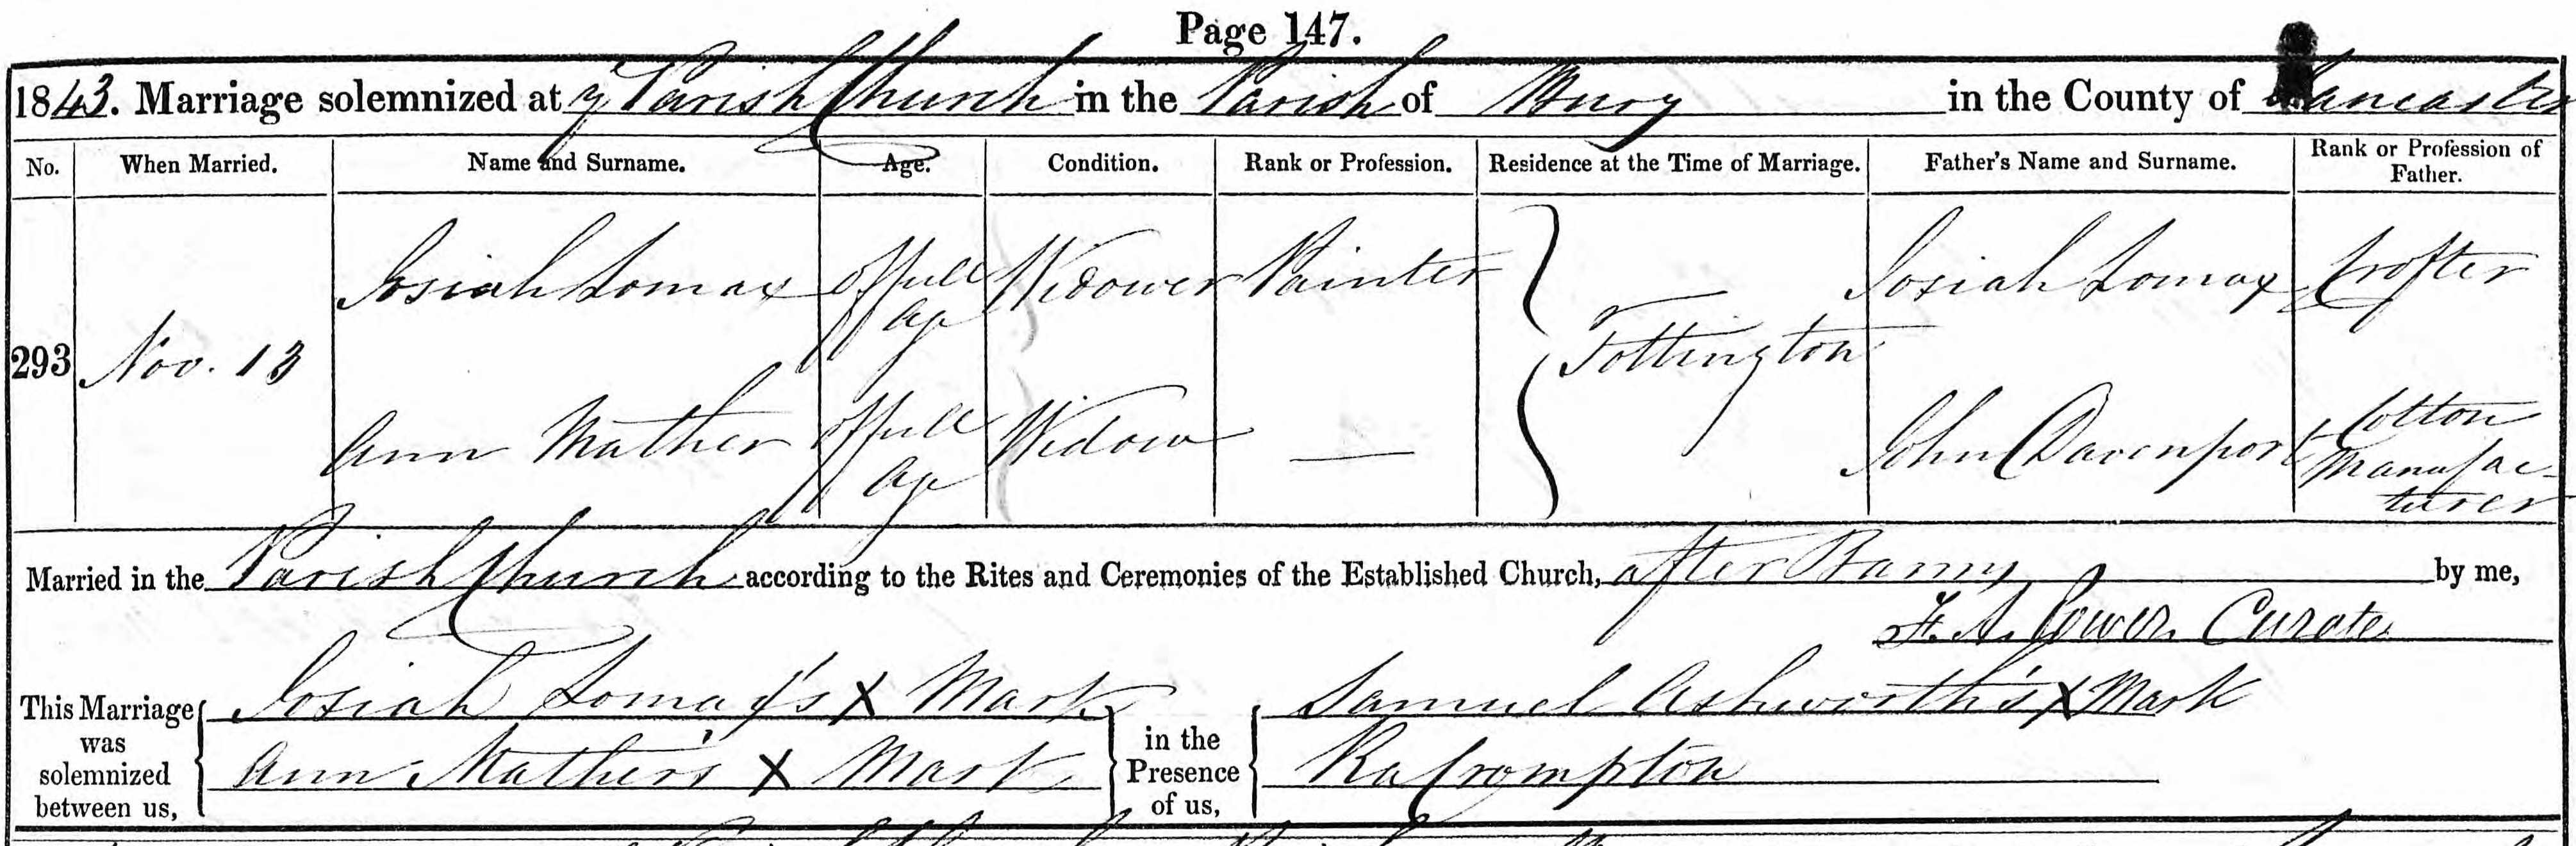 Page 147.
1843. Marriage solemnized at ye Parish Church in the Parish of Bury in the County of Lancaster
No. When Married. Name and Surname. Age. Condition. Rank or Profession. Residence at the Time of Marriage. Father's Name and Surname. Rank or Profession of Father.
293 Nov. 13 Josiah Lomax of full age Widower Painter Tottington Josiah Lomax Crofter
Ann Mather of full age Widow — John Davenport Cotton Manufac-
turer
Married in the Parish Church according to the Rites and Ceremonies of the Established Church, after Banns by me,
F. A. Curate
This Marriage was solemnized between us, Josiah Lomax's X Mark in the Presence of us, Samuel Ashworth's X Mark
Ann Mather's X Mark Ra Crompton